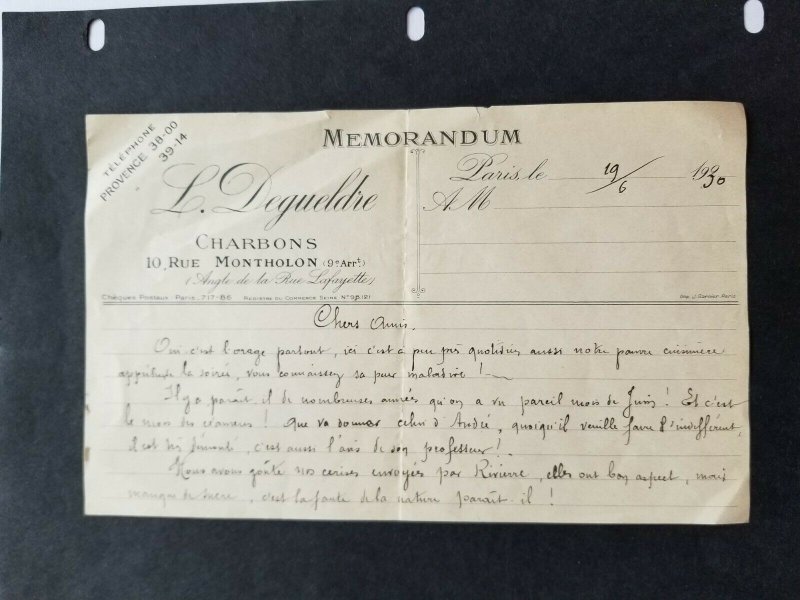 MEMORANDUM
TÉLÉPHONE
PROVENCE 38-00
39-14
L. Degueldre
CHARBONS
10, RUE MONTHOLON (9e Arrt)
(Angle de la Rue Lafayette)
Paris, le 19/6 1930
A M
Chèques Postaux Paris 717-86 REGISTRE DU COMMERCE SEINE N° 98.121
Imp. J. Garnier Paris
Chers Amis.
Oui c'est l'orage partout, ici c'est à peu près quotidien aussi notre pauvre cuisinière
appréhende la soirée, vous connaissez sa peur maladive !
Il y a paraît-il de nombreuses années qu'on a vu pareil mois de Juin ! Et c'est
le mois des examens ! Que va donner celui d'André, quoiqu'il veuille faire l'indifférent,
il est très démonté, c'est aussi l'avis de son professeur !
Nous avons goûté nos cerises envoyés par Rivierre, elles ont bon aspect, mais
manque de sucre, c'est la faute de la nature paraît-il !